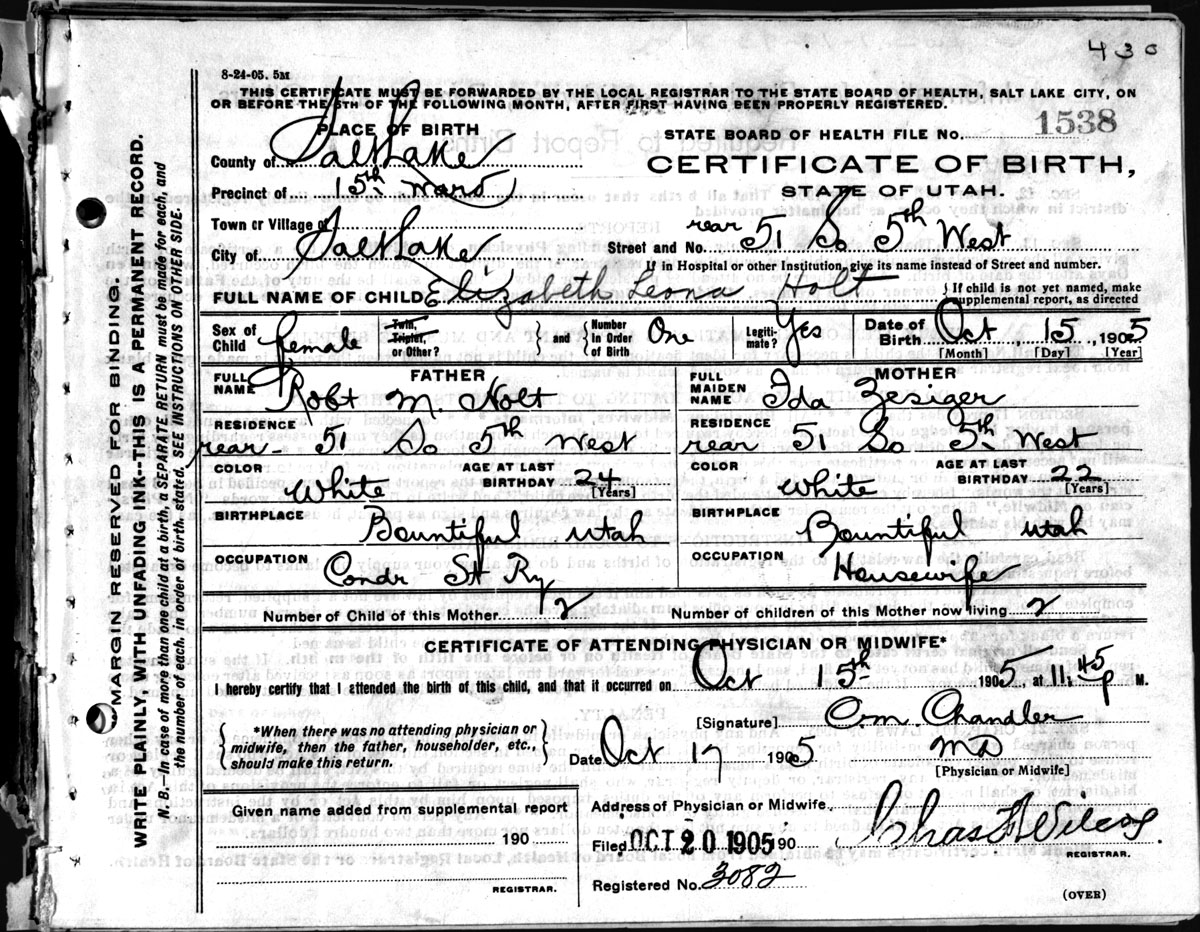 430
8-24-05. 5M
THIS CERTIFICATE MUST BE FORWARDED BY THE LOCAL REGISTRAR TO THE STATE BOARD OF HEALTH, SALT LAKE CITY, ON
OR BEFORE THE 5TH OF THE FOLLOWING MONTH, AFTER FIRST HAVING BEEN PROPERLY REGISTERED.
PLACE OF BIRTH
STATE BOARD OF HEALTH FILE No. 1538
County of Salt Lake
CERTIFICATE OF BIRTH,
Precinct of 15th Ward
STATE OF UTAH.
Town or Village of
City of Salt Lake
Street and No. rear 51 So 5th West
If in Hospital or other Institution, give its name instead of Street and number.
FULL NAME OF CHILD Elizabeth Leona Holt } If child is not yet named, make supplemental report, as directed
Sex of Child female Twin, Triplet, or Other? } and { Number in Order of Birth One Legiti-mate? Yes Date of Birth Oct, 15, 1905
[Month] [Day] [Year]
FATHER
FULL NAME Robt M. Holt
MOTHER
FULL MAIDEN NAME Ida Zesiger
RESIDENCE rear - 51 So 5th West
RESIDENCE rear 51 So 5th West
COLOR White AGE AT LAST BIRTHDAY 24 [Years]
COLOR White AGE AT LAST BIRTHDAY 22 [Years]
BIRTHPLACE Bountiful Utah
BIRTHPLACE Bountiful Utah
OCCUPATION Condr St Ry
OCCUPATION Housewife
Number of Child of this Mother 2 Number of children of this Mother now living 2
CERTIFICATE OF ATTENDING PHYSICIAN OR MIDWIFE*
I hereby certify that I attended the birth of this child, and that it occurred on Oct 15th 1905, at 11:45 P M.
{ *When there was no attending physician or
midwife, then the father, householder, etc.,
should make this return. }
[Signature] C.M. Chandler
Date Oct 17 1905 MD
[Physician or Midwife]
Given name added from a supplemental report
190
REGISTRAR.
Address of Physician or Midwife
Filed OCT 20 1905 190 Chas
REGISTRAR.
Registered No. 3082
(OVER)
MARGIN RESERVED FOR BINDING.
WRITE PLAINLY, WITH UNFADING INK--THIS IS A PERMANENT RECORD.
N. B.—In case of more than one child at a birth, a SEPARATE RETURN must be made for each, and
the number of each, in order of birth, stated. SEE INSTRUCTIONS ON OTHER SIDE.